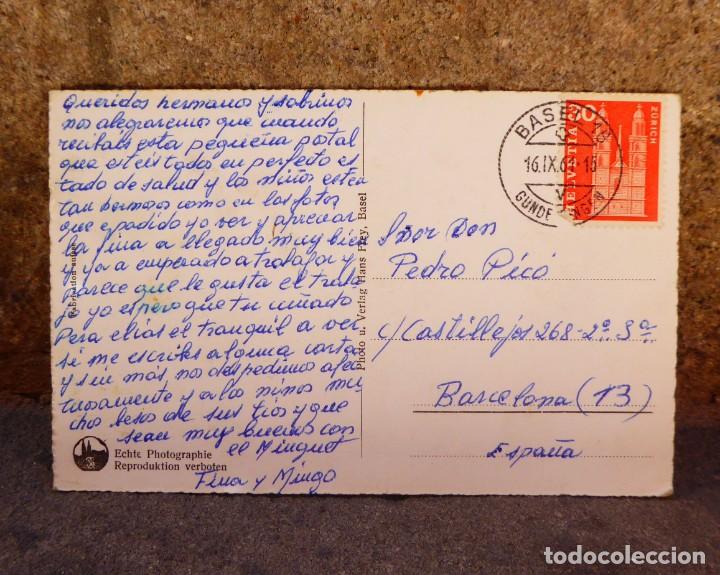 Queridos hermanos y sobrinos
nos alegraremos que cuando
recibais esta pequeña postal
que esteis todos en perfecto es
tado de salud y los niños esten
tan hermosos como en las fotos
que e podido yo ver y apreciar
la Fina a llegado muy bien
y ya a empezado a trabajar y
parece que le gusta el traba
jo yo espero que tu cuñado
Pera elias el tranquil a ver
si me escribes alguna carta
y sin mas nos despedimos afec
tuosamente y a los niños mu
chos besos de sus tios y que
sean muy buenos con
el Minguet
Fina y Mingo
Echte Photographie
Reproduktion verboten
Fabrication suisse
Photo u. Verlag Hans Frey, Basel
BASEL 18
16.IX.64-15
GUNDELDINGEN
HELVETIA
ZÜRICH
Señor Don
Pedro Picó
c/ Castillejos 268-2º 3ª
Barcelona (13)
España
todocoleccion.net